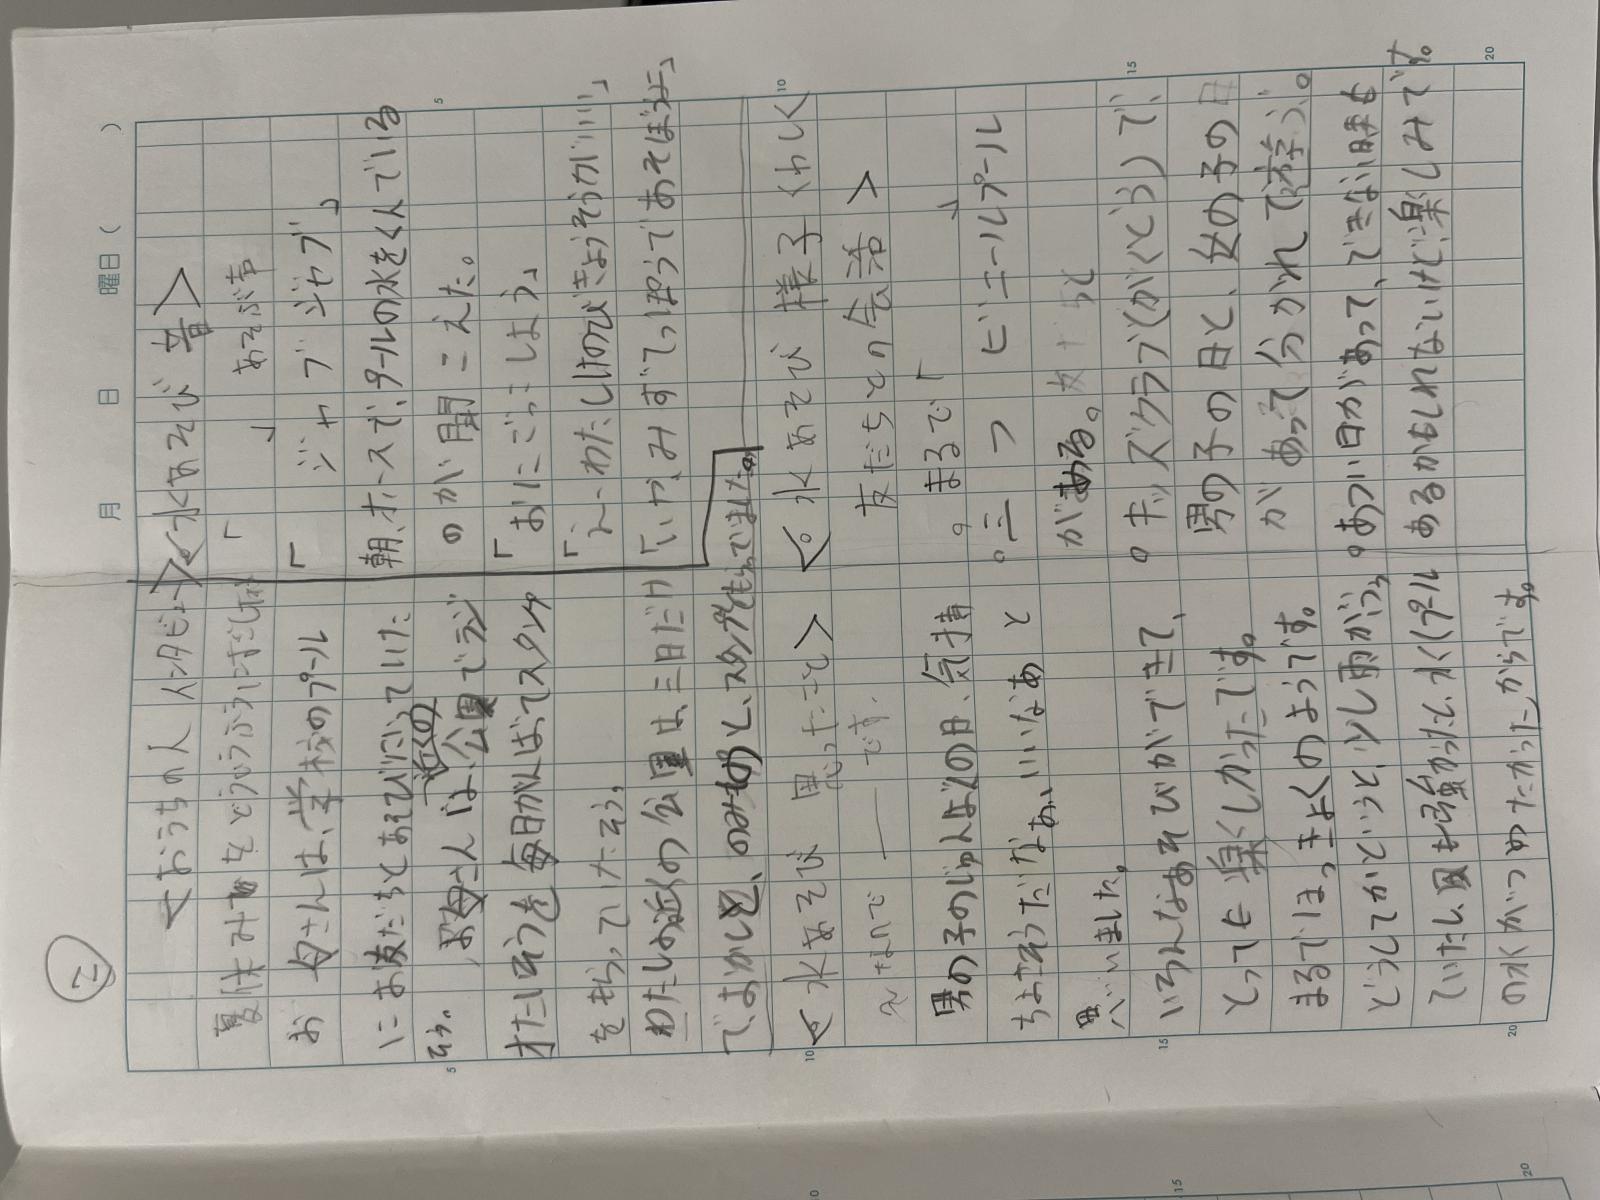 ②
月 日 曜日( )
<おうちの人 インタビュー>
夏休みをどういうふうにすごした
お母さんは、学校のプール
にお友だちとあそびに行っていた
そう。お母さんは、近くの公園でラジ
オたいそうを毎日がんばってスタンプ
をもらっていたそう。
わたしは近くの公園は、三日だけ
でおかしと、のみものと、スタンプをもらってました。
<水あそび 思ったこと>
え なので ― です。
男の子のじゅんばんの日、気持
ちよさそうだなぁ、いいなあ と
思いました。
いろんなあそびができて、
とっても楽しかったです。
まるではっきょくのようです。
どうしてかというと、少し雨がふっ
ていたし、風も強かったし、水(プール
の水)がつめたかったからです。
<水あそび 音>
「 」 あそぶ声
「ジャブ ジャブ」
朝、ホースで、プールの水をくんでいる
のが聞こえた。
「おにごっこしよう」
「え〜わたしはのびきょうそうがいい」
「いや、みずでっぽうであそぼうよ」
<水あそび 様子 くわしく
友だちとの会話>
。まるで「 」
。二つ ビニールプール
がある。
。キッズクラブ(がくどう)で、
男の子の日と、女の子の日
があって分かれて遊ぶ。
。あつい日があって、できない日も
あるかもしれないけど、楽しみです。
5
10
15
20
5
10
15
20
10
15
20